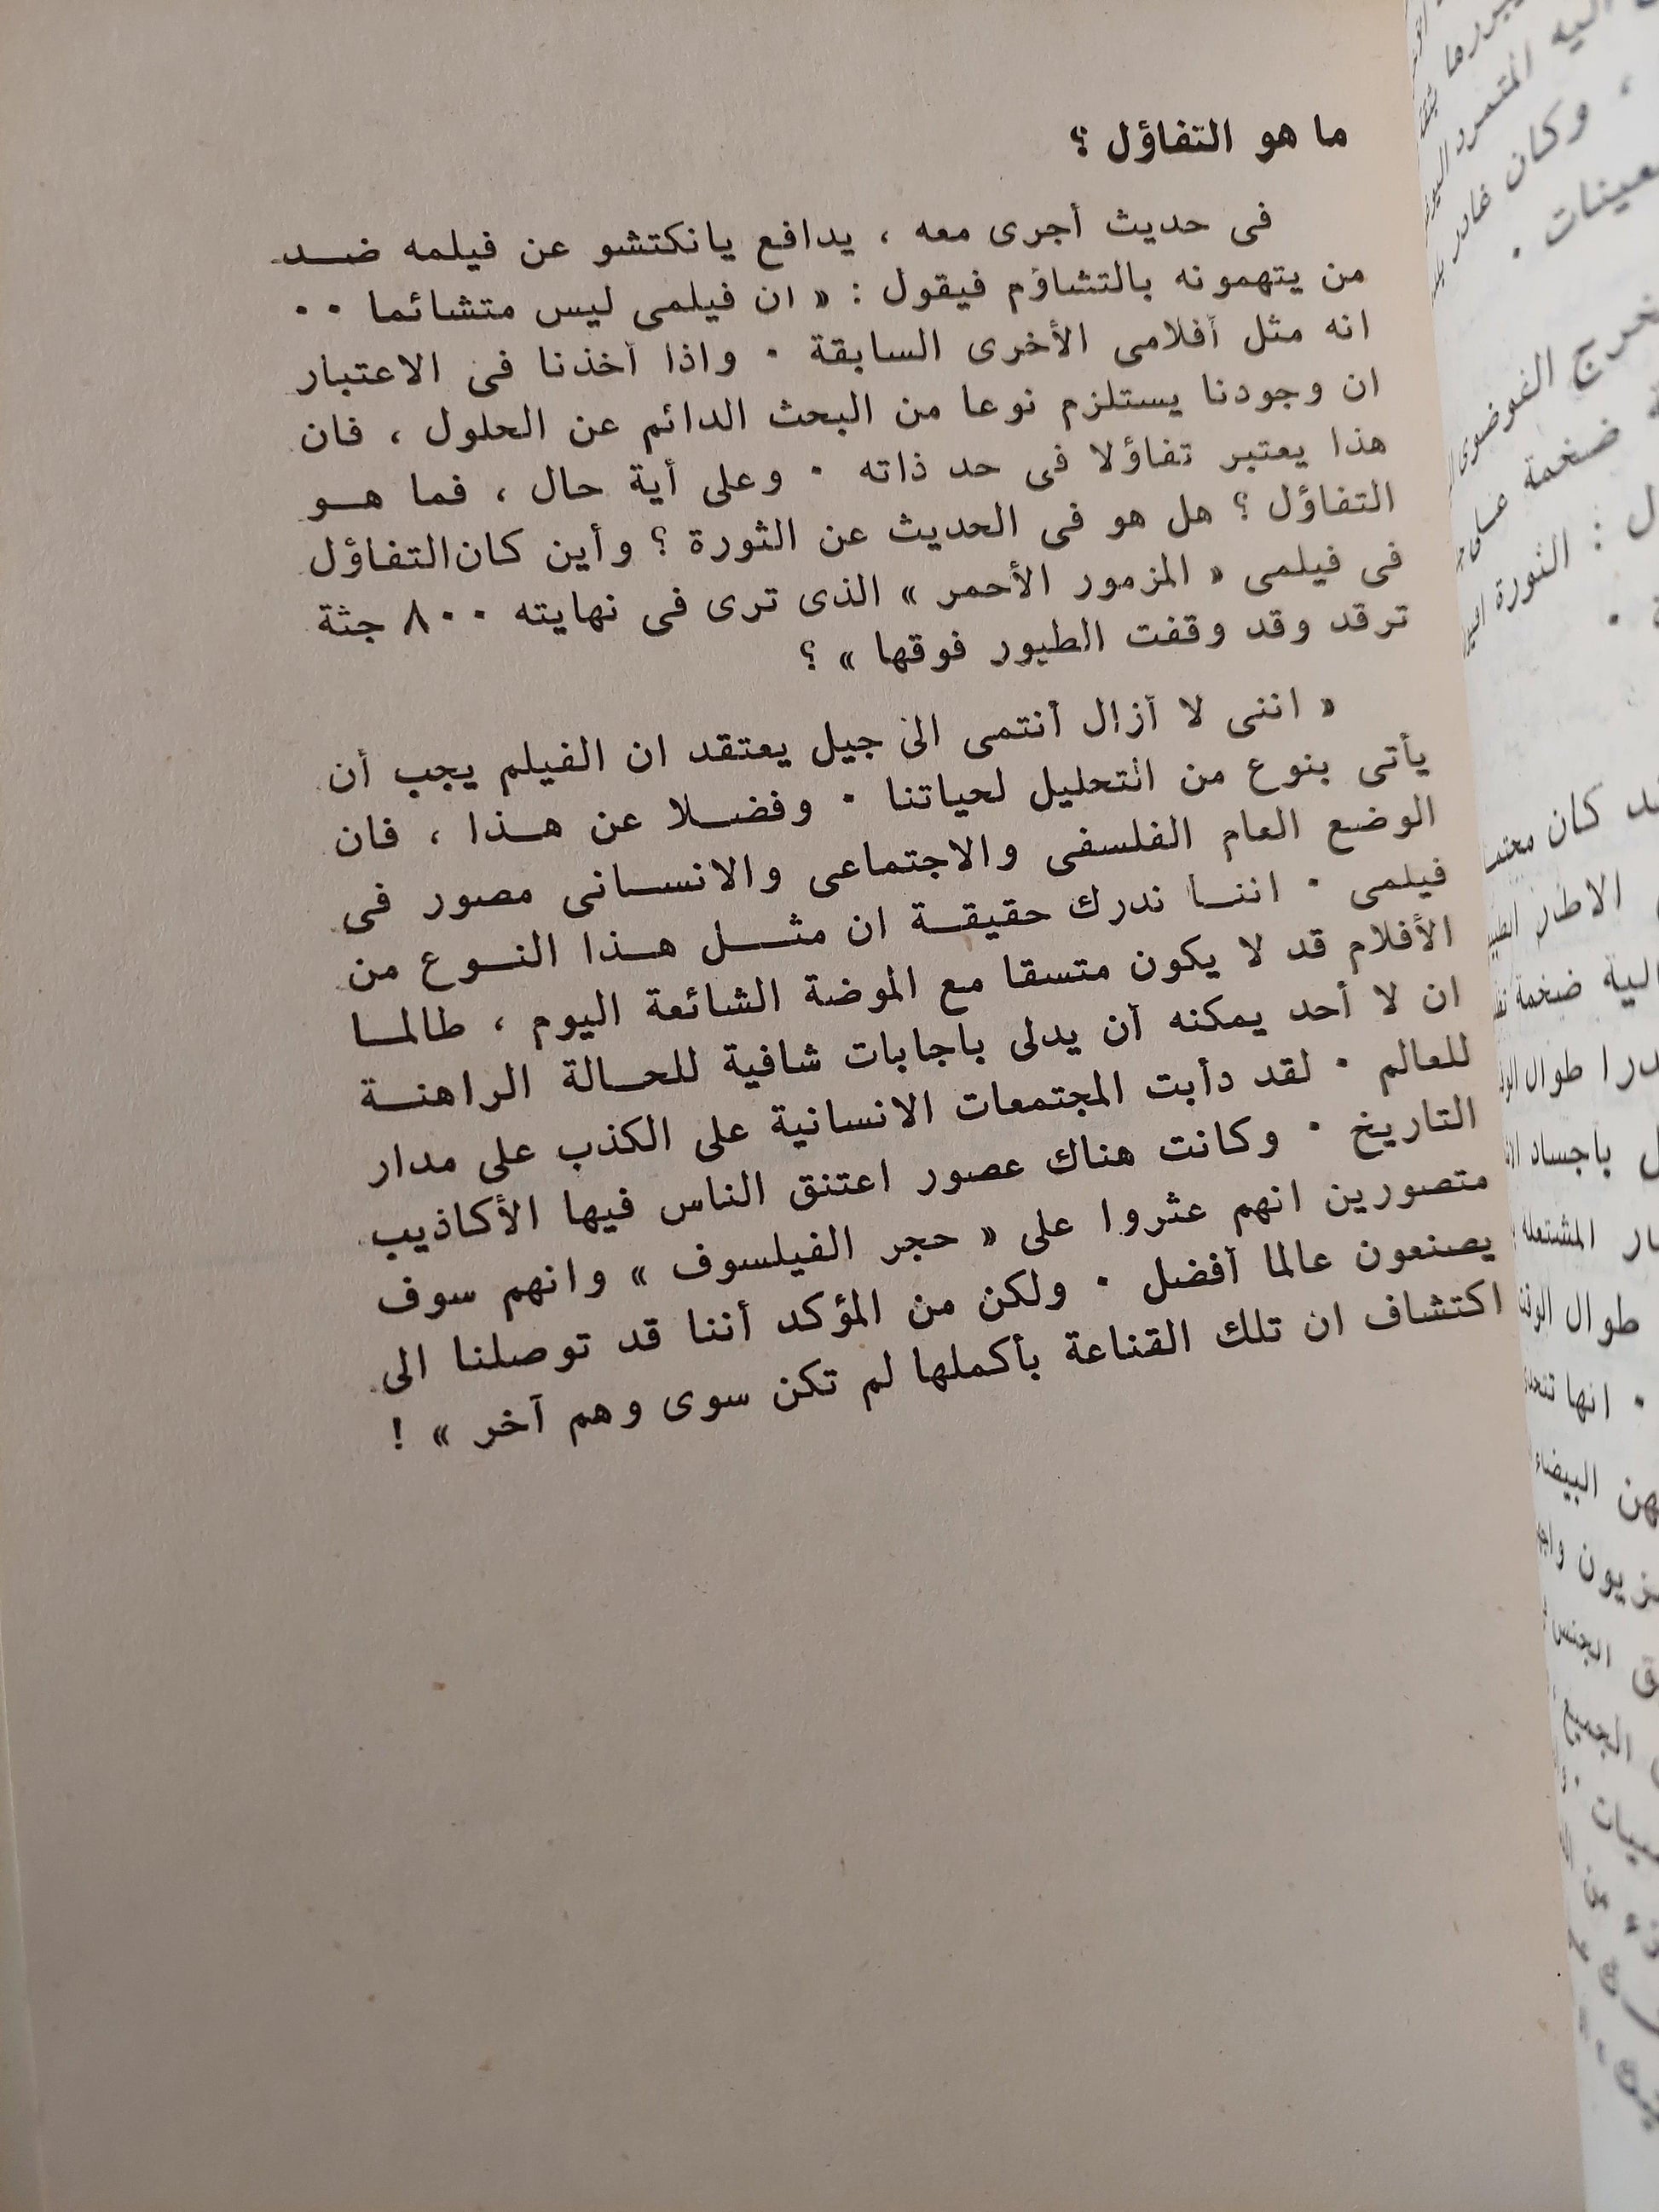 ما هو التفاؤل ؟
فى حديث أجرى معه ، يدافع يانكتشو عن فيلمه ضد
من يتهمونه بالتشاؤم فيقول : « ان فيلمى ليس متشائما ٠٠
انه مثل أفلامى الأخرى السابقة ٠ واذا أخذنا فى الاعتبار
ان وجودنا يستلزم نوعا من البحث الدائم عن الحلول ، فان
هذا يعتبر تفاؤلا فى حد ذاته ٠ وعلى أية حال ، فما هو
التفاؤل ؟ هل هو فى الحديث عن الثورة ؟ وأين كان التفاؤل
فى فيلمى « المزمور الأحمر » الذى ترى فى نهايته ٨٠٠ جثة
ترقد وقد وقفت الطيور فوقها » ؟
« اننى لا أزال أنتمى الى جيل يعتقد ان الفيلم يجب أن
يأتى بنوع من التحليل لحياتنا ٠ وفضلا عن هذا ، فان
الوضع العام الفلسفى والاجتماعى والانسانى مصور فى
فيلمى ٠ اننا ندرك حقيقة ان مثل هذا النوع من
الأفلام قد لا يكون متسقا مع الموضة الشائعة اليوم ، طالما
ان لا أحد يمكنه أن يدلى باجابات شافية للحالة الراهنة
للعالم ٠ لقد دأبت المجتمعات الانسانية على الكذب على مدار
التاريخ ٠ وكانت هناك عصور اعتنق الناس فيها الأكاذيب
متصورين انهم عثروا على « حجر الفيلسوف » وانهم سوف
يصنعون عالما أفضل ٠ ولكن من المؤكد أننا قد توصلنا الى
اكتشاف ان تلك القناعة بأكملها لم تكن سوى وهم آخر » !